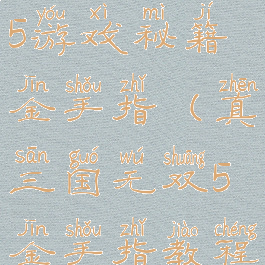 yóu xì mì jí
5游戏秘籍
jīn shǒu zhǐ zhēn
金手指（真
sān guó wú shuāng
三国无双5
jīn shǒu zhǐ jiào chéng
金手指教程